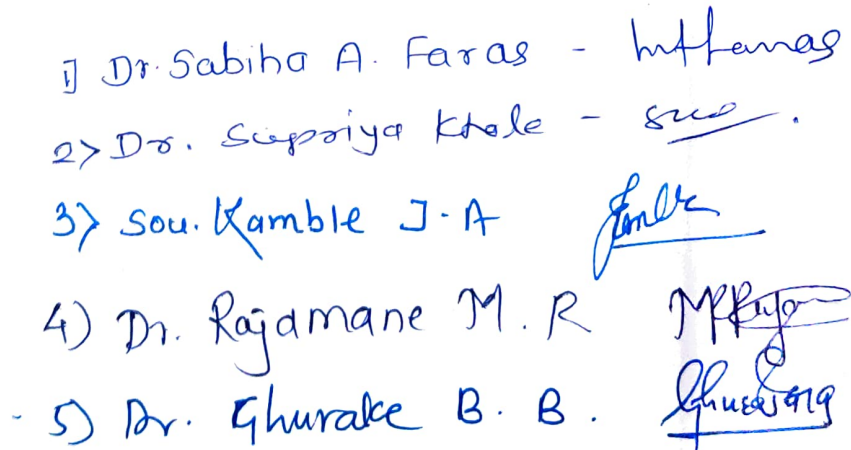 1] Dr. Sabiha A. Faras -
2> Dr. Supriya Khole -
3> Sou. Kamble J. A
4) Dr. Rajamane M. R
5) Dr. Ghurake B. B.